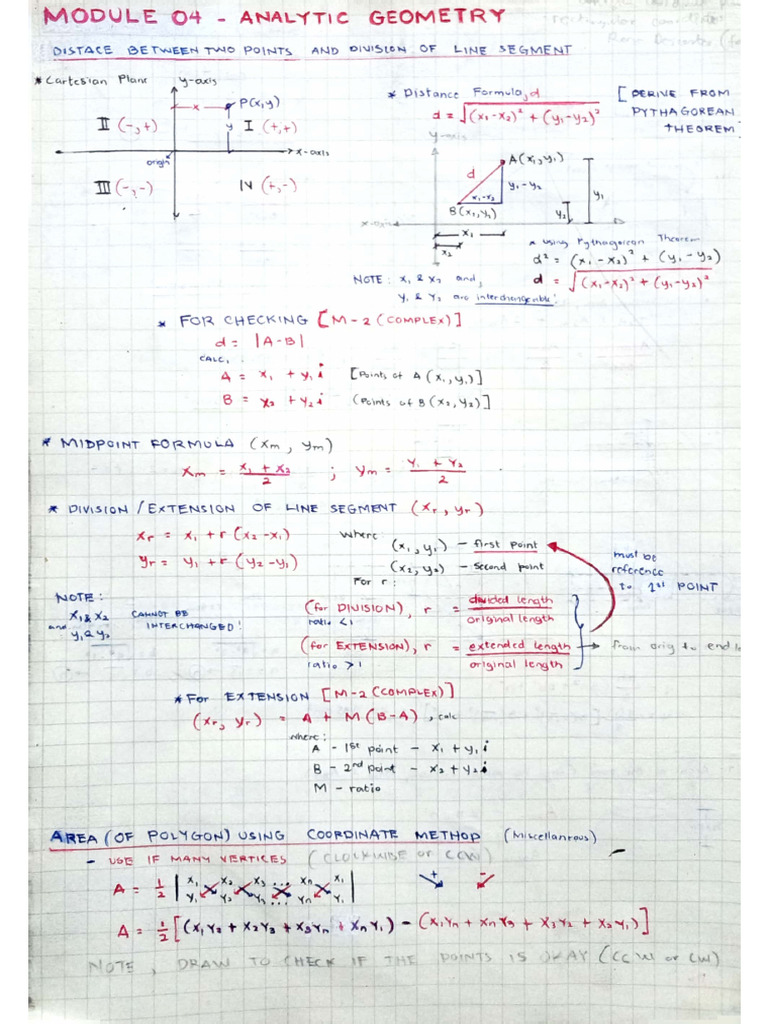 MODULE 04 - ANALYTIC GEOMETRY
DISTACE BETWEEN TWO POINTS AND DIVISION OF LINE SEGMENT
* Cartesian Plane
y-axis
x
P(x,y)
II (-,+)
y
I (+,+)
origin
x-axis
III (-,-)
IV (+,-)
* Distance Formula, d
d = √(x₁-x₂)² + (y₁-y₂)²
[DERIVE FROM
PYTHAGOREAN
THEOREM]
y-axis
A(x₁,y₁)
d
y₁-y₂
x₁-x₂
B(x₂,y₂)
y₁
y₂
x-axis
x₁
x₂
* using Pythagorean Theorem
d² = (x₁-x₂)² + (y₁-y₂)
d = √(x₁-x₂)² + (y₁-y₂)²
NOTE: x₁ & x₂ and,
y₁ & y₂ are interchangeable!
* FOR CHECKING [M-2 (COMPLEX)]
d = |A-B|
CALC,
A = x₁ + y₁i [Points of A(x₁,y₁)]
B = x₂ + y₂i (Points of B(x₂,y₂)]
* MIDPOINT FORMULA (xm, ym)
xm = x₁ + x₂ / 2 ; ym = y₁ + y₂ / 2
* DIVISION/EXTENSION OF LINE SEGMENT (xr, yr)
xr = x₁ + r(x₂-x₁)
yr = y₁ + r(y₂-y₁)
where:
(x₁,y₁) - first point
(x₂,y₂) - second point
For r:
must be
reference
to 1st POINT
NOTE:
x₁ & x₂
and y₁ & y₂
CANNOT BE
INTERCHANGED!
(for DIVISION), r = divided length / original length
ratio < 1
(for EXTENSION), r = extended length / original length → from orig to end
ratio > 1
* For EXTENSION [M-2 (COMPLEX)]
(xr, yr) = A + M(B-A), calc
where:
A - 1st point - x₁ + y₁i
B - 2nd point - x₂ + y₂i
M - ratio
AREA (OF POLYGON) USING COORDINATE METHOD (Miscellanrous)
- USE IF MANY VERTICES (CLOCKWISE OR CCW)
A = 1/2 | x₁ x₂ x₃ ... xn x₁ |
y₁ y₂ y₃ ... yn y₁
+ -
A = 1/2 [(x₁y₂ + x₂y₃ + x₃yn + xny₁) - (x₁yn + xny₃ + x₃y₂ + x₂y₁)]
NOTE, DRAW TO CHECK IF THE POINTS IS OKAY (CCW or CW)